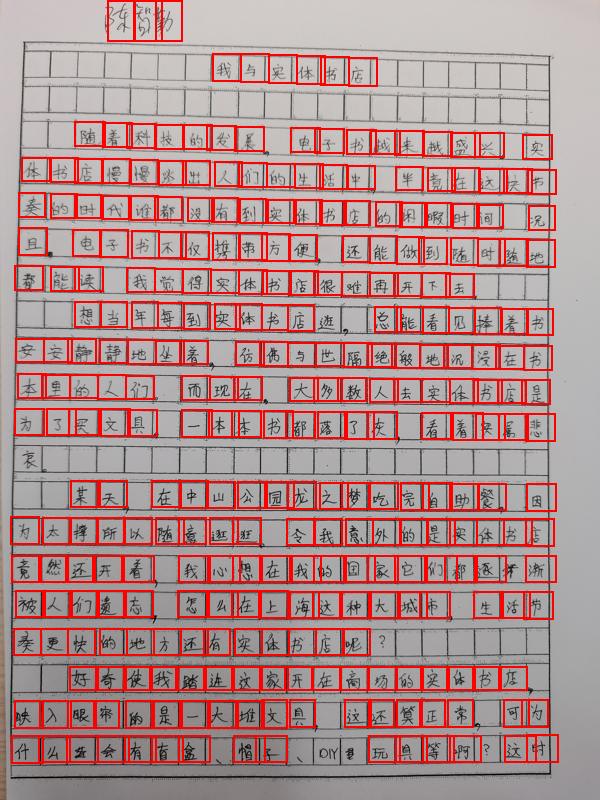 陈智勤
我与实体书店
随着科技的发展，电子书越来越盛兴，实
体书店慢慢淡出人们的生活中，毕竟在这大节
奏的时代谁都没有到实体书店的闲暇时间，况
且，电子书不仅携带方便，还能做到随时随地
都能读，我觉得实体书店很难再开下去
想当年每到实体书店逛，总能看见捧着书
安安静静地坐着，仿佛与世隔绝般地沉浸在书
本里的人们，而现在，大多数人去实体书店是
为了买文具，一本本书都落了灰，看着实属悲
哀。
某天，在中山公园龙之梦吃完自助餐，因
为太撑所以随意逛逛。令我意外的是实体书店
竟然还开着，我心想在我的国家它们都逐渐
被人们遗忘，怎么在上海这种大城市，生活节
奏更快的地方还有实体书店呢？
好奇使我踏进这家开在商场的实体书店，
映入眼帘的是一大堆文具，这还算正常，可为
什么还会有盲盒、帽子、DIY玩具等啊？这时